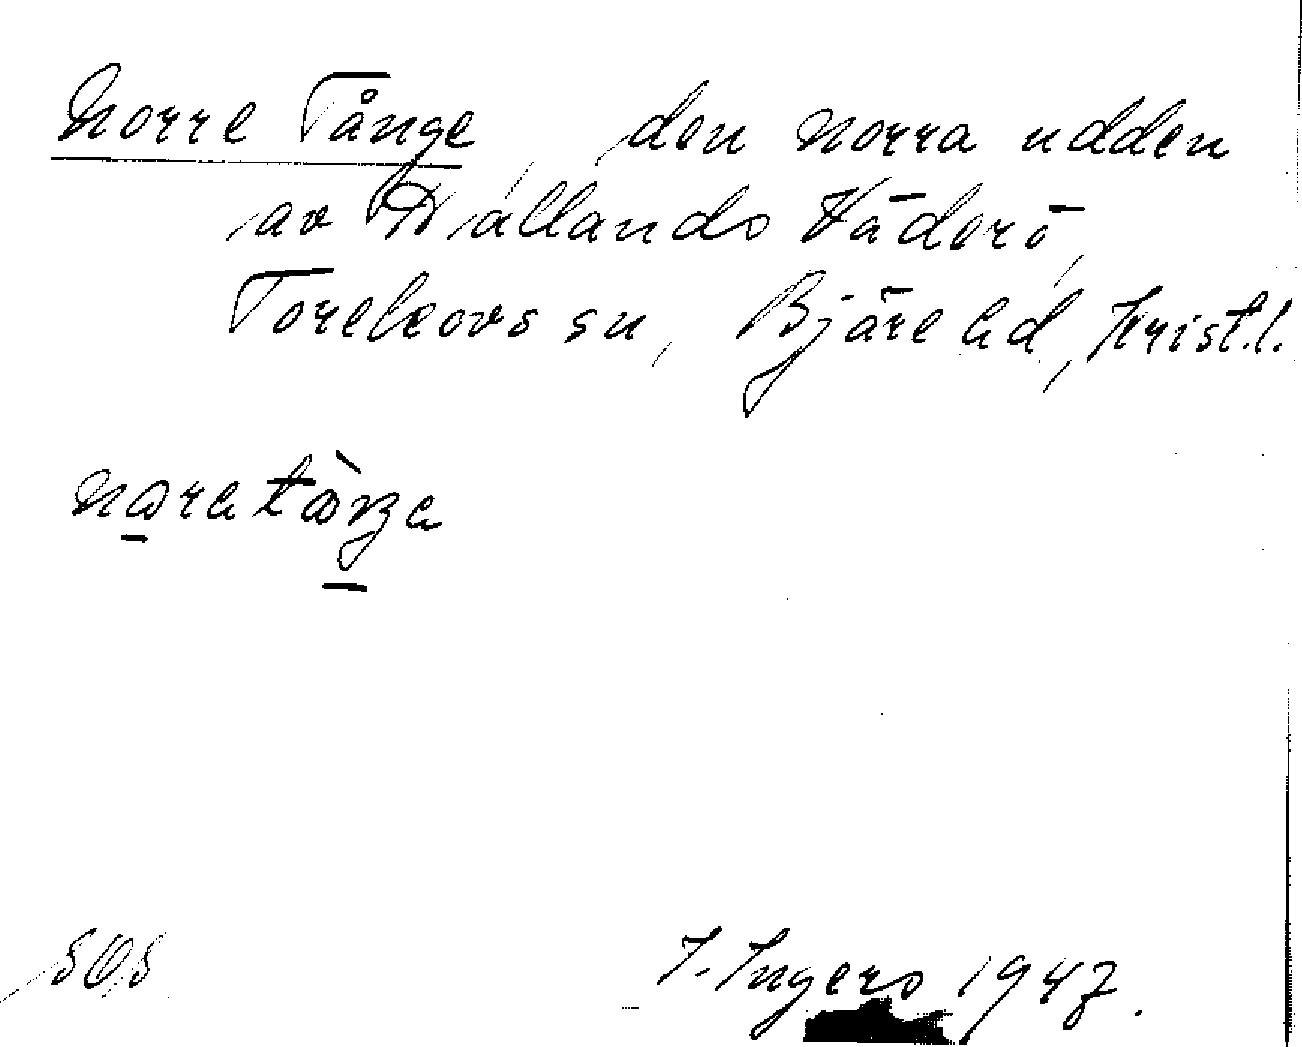 Norre Tånge, den norra udden
av Hallands Väderö,
Torekovs sn, Bjäre hd, Krist.l.
I. Ingers 1947.